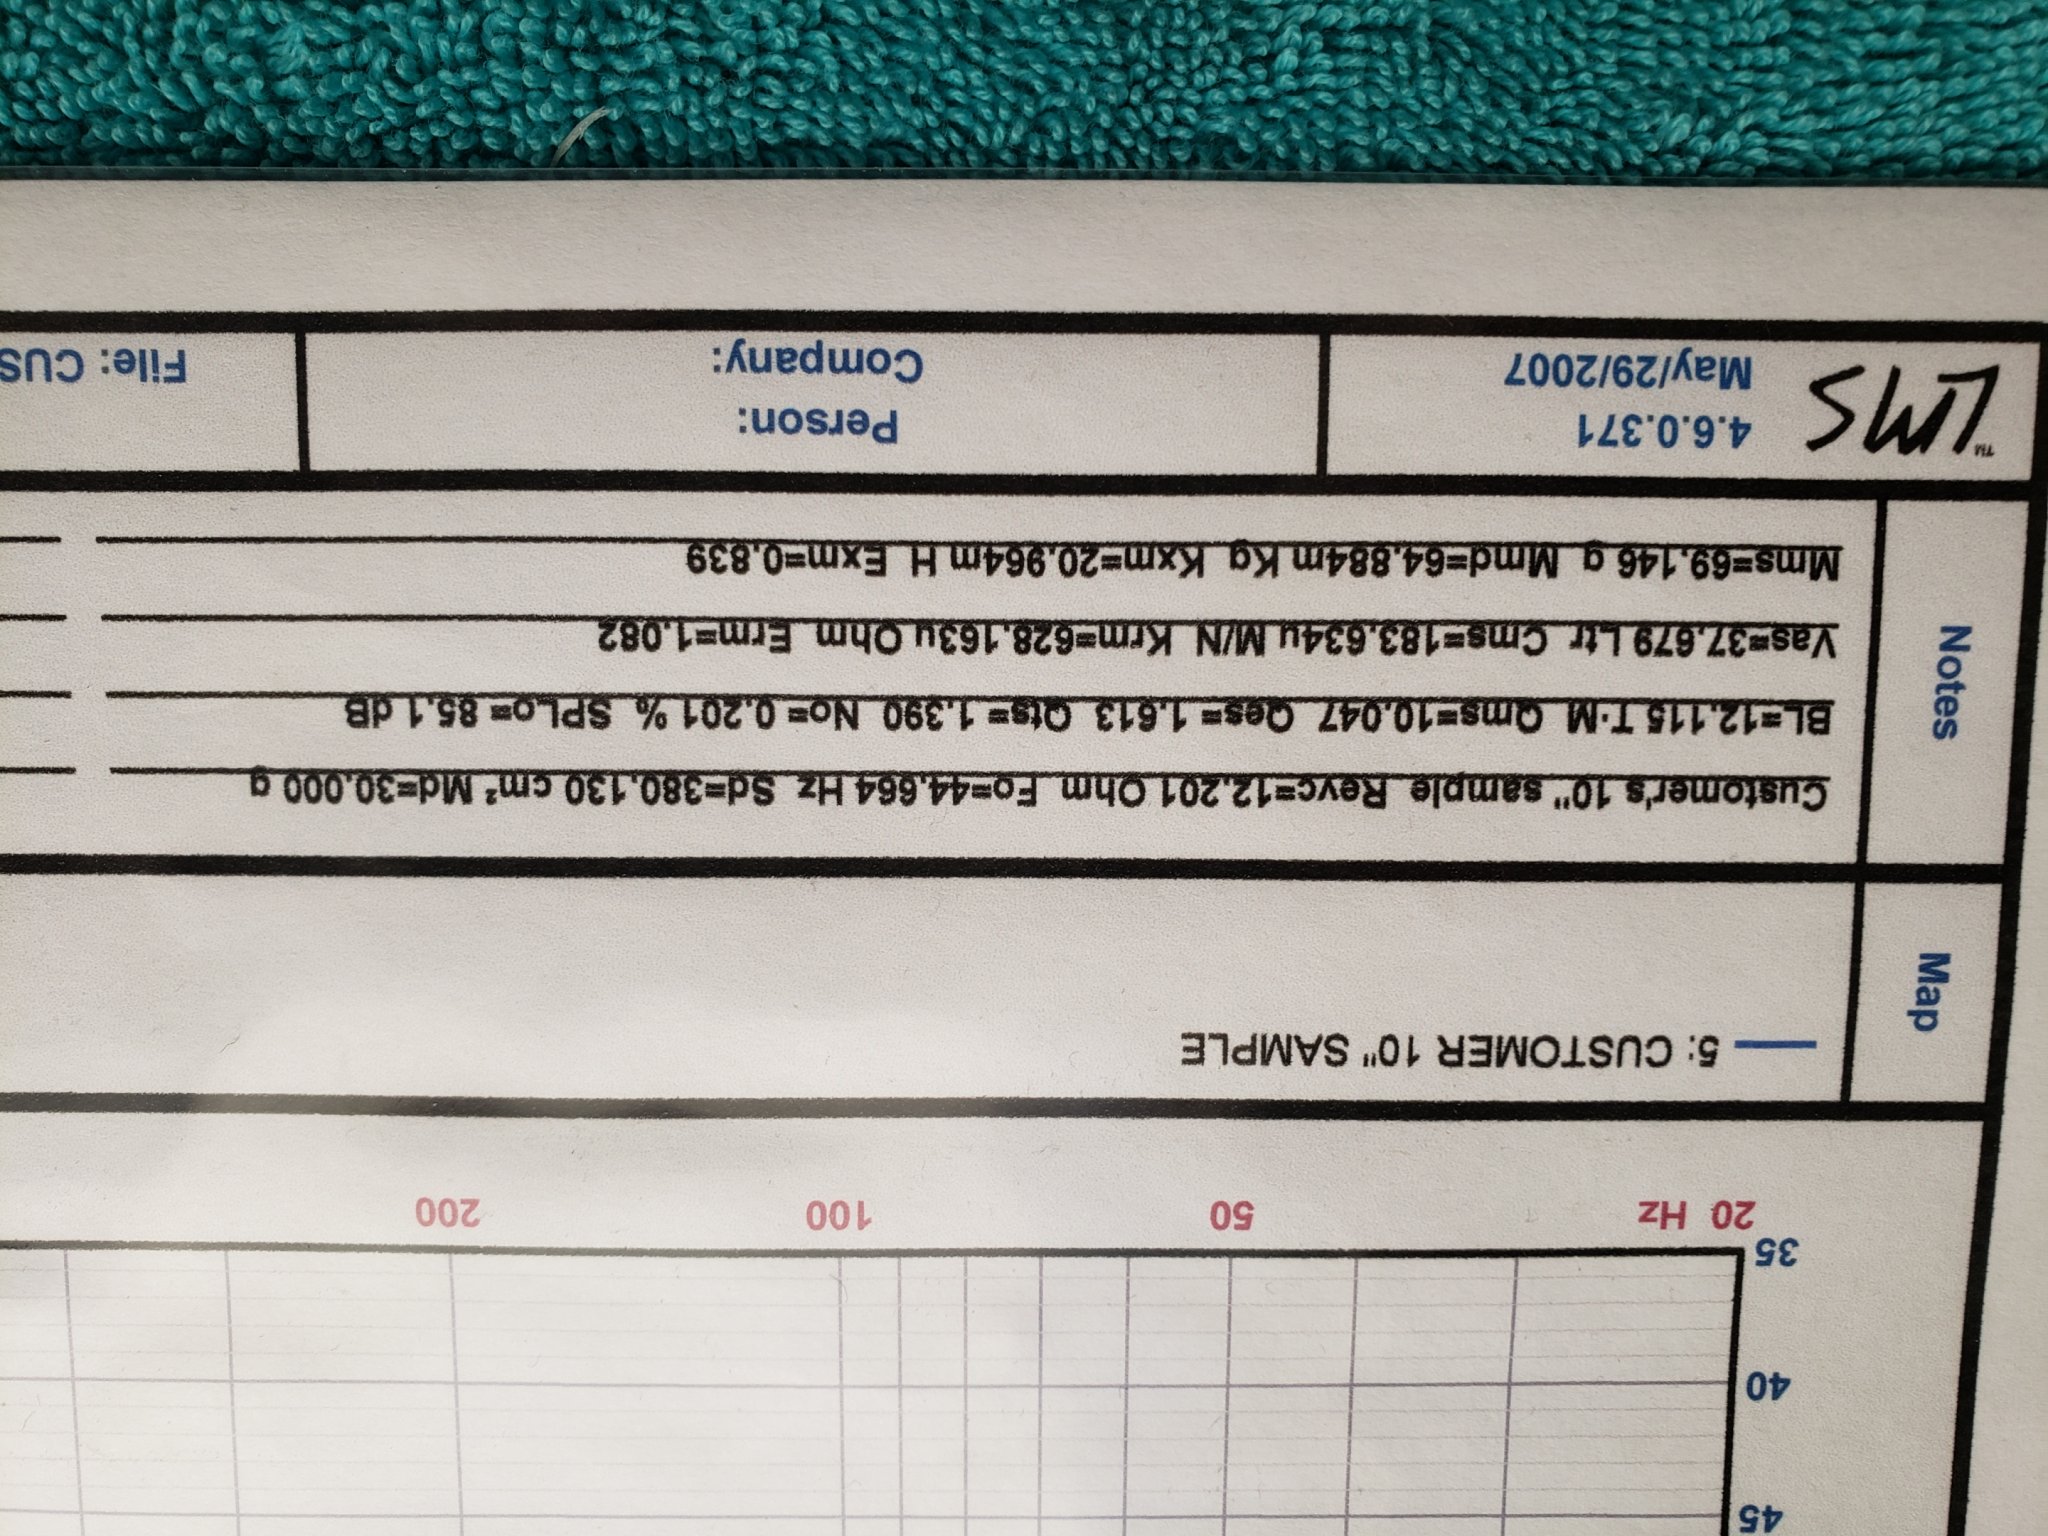 45
40
35
20 Hz 50 100 200
Map
5: CUSTOMER 10" SAMPLE
Notes
Customer's 10" sample Revc=12.201 Ohm Fo=44.664 Hz Sd=380.130 cm² Md=30.000 g
BL=12.115 T·M Qms=10.047 Qes= 1.613 Qts= 1.390 No= 0.201 % SPLo= 85.1 dB
Vas=37.679 Ltr Cms=183.634u M/N Krm=628.163u Ohm Erm=1.082
Mms=69.146 g Mmd=64.884m Kg Kxm=20.964m H Exm=0.839
LMS™
4.6.0.371
May/29/2007
Person:
Company:
File: CUS